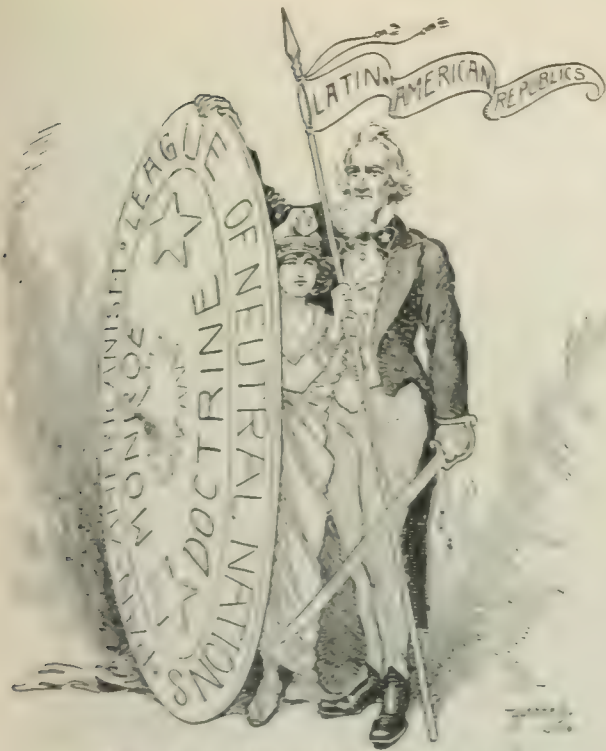 LATIN-AMERICAN REPUBLICS
LEAGUE OF NEUTRAL NATIONS
MONROE
DOCTRINE